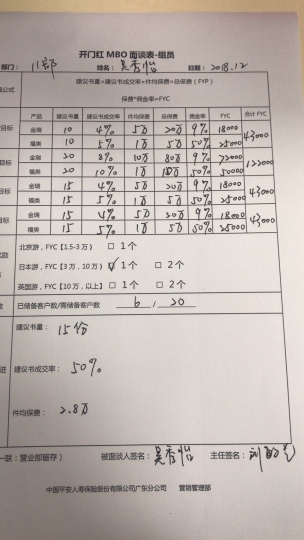 开门红 MBO 面谈表-组员
部门： 11部 姓名： 吴秀怡 日期： 2018.12
公式 建议书量*建议书成交率*件均保费=总保费（FYP）
保费*佣金率=FYC
产品 建议书量 建议书成交率 件均保费 总保费 佣金率 FYC 合计 FYC
目标 金瑞 10 4% 5万 20万 9% 18000 43000
福类 10 5% 1万 5万 50% 25000
目标 金瑞 20 8% 10万 80万 9% 72000 122000
福类 20 10% 1万 10万 50% 50000
目标 金瑞 15 4% 5万 20万 9% 18000 43000
福类 15 5% 1万 5万 50% 25000
目标 金瑞 15 4% 5万 20万 9% 18000 43000
福类 15 5% 1万 5万 50% 25000
励 北京游，FYC【1.5-3 万） □ 1 个
日本游，FYC【3 万，10 万） ☑ 1 个 □ 2 个
英国游，FYC【10 万，以上】 □ 1 个 □ 2 个
已储备客户数/需储备客户数 6 , 20
建议书量： 15份
进 建议书成交率： 50%
件均保费： 2.8万
一联：营业部留存） 被面谈人签名： 吴秀怡 主任签名：
中国平安人寿保险股份有限公司广东分公司 营销管理部